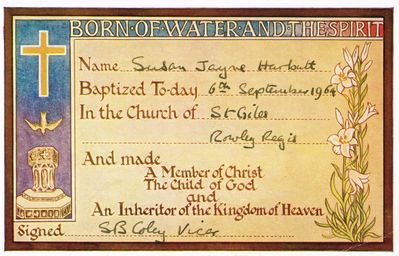 BORN·OF·WATER·AND·THE·SPIRIT
Name Susan Jayne Harbutt
Baptized To-day 6th September 1964
In the Church of St Giles
Rowley Regis
And made
A Member of Christ
The Child of God
and
An Inheritor of the Kingdom of Heaven
Signed SB Coley Vicar